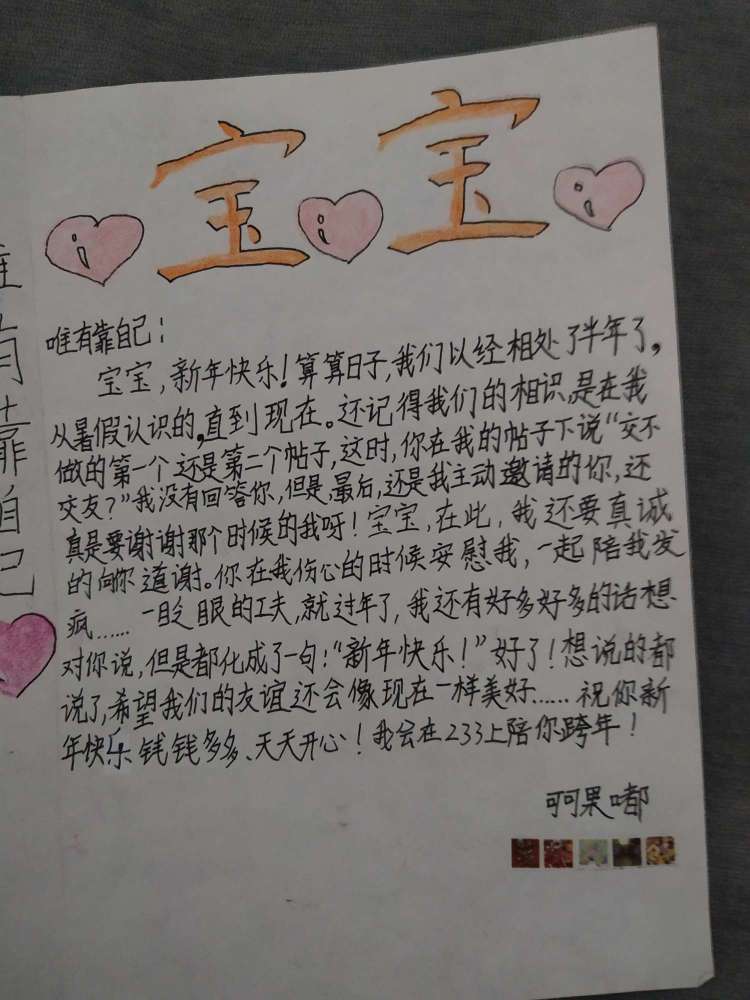 宝宝
唯有靠自己
唯有靠自己：
宝宝，新年快乐！算算日子，我们以经相处了半年了，
从暑假认识的，直到现在。还记得我们的相识，是在我
做的第一个还是第二个帖子，这时，你在我的帖子下说“交不
交友？”我没有回答你，但是，最后，还是我主动邀请的你，还
真是要谢谢那个时候的我呀！宝宝，在此，我还要真诚
的向你道谢。你在我伤心的时候安慰我，一起陪我发
疯……一眨眼的工夫，就过年了，我还有好多好多的话想
对你说，但是都化成了一句：“新年快乐！”好了！想说的都
说了，希望我们的友谊还会像现在一样美好……祝你新
年快乐 钱钱多多、天天开心！我会在233上陪你跨年！
可可果嘟